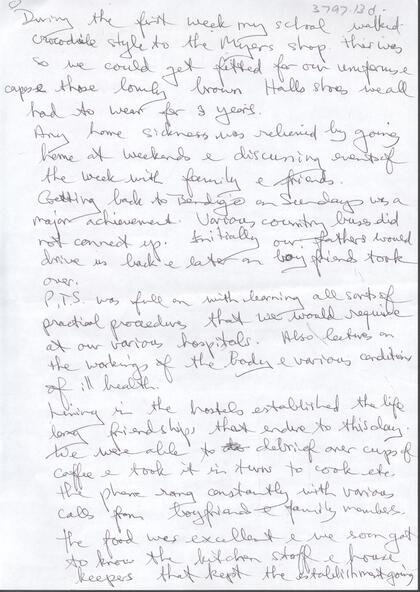 3797.13d.
During the first week my school walked
crocodile style to the Myers shop. This was
so we could get fitted for our uniforms e
capes e those lovely brown Halls shoes we all
had to wear for 3 years.
Any home sickness was relieved by going
home at weekends e discussing events of
the week with family e friends.
Getting back to Bendigo on Sundays was a
major achievement. Various country buses did
not connect up. Initially our fathers would
drive us back e later on boyfriends took
over.
P.T.S. was full on with learning all sorts of
practical procedures that we would require
at our various hospitals. Also lectures on
the workings of the Body e various condition
of ill health.
Living in the hostels established the life
long friendships that endure to this day.
We were able to debrief over cups of
coffee e took it in turns to cook etc.
The phone rang constantly with various
calls from boyfriend e family members.
The food was excellent e we soon got
to know the kitchen staff e house
keepers that kept the establishment going